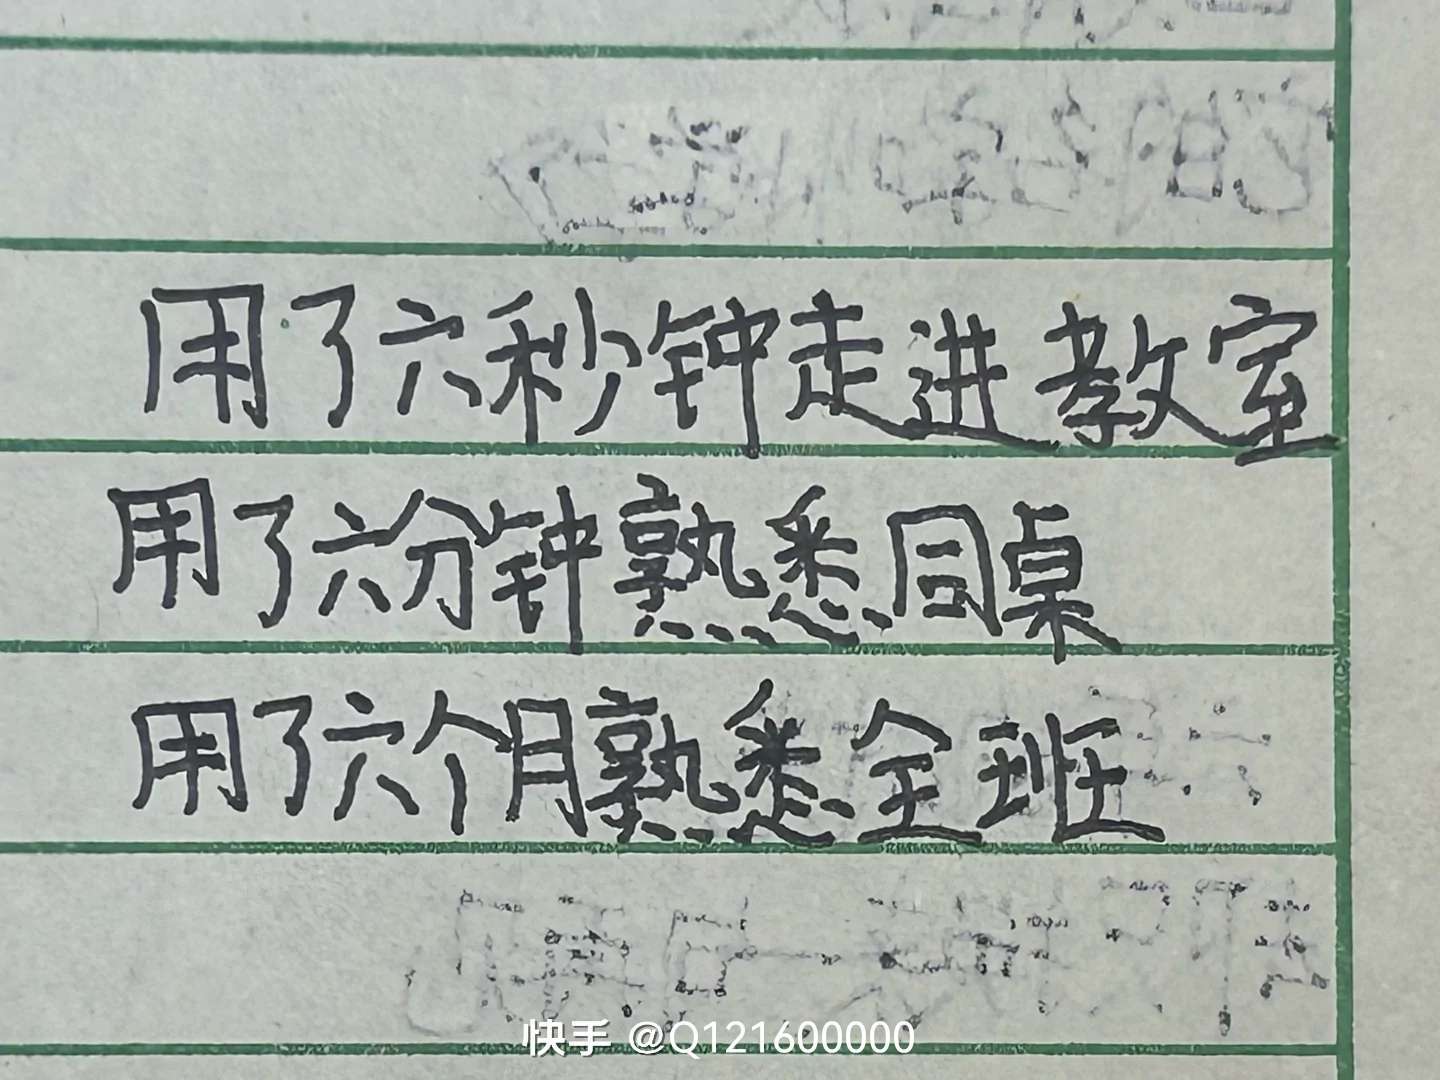 用了六秒钟走进教室
用了六分钟熟悉同桌
用了六个月熟悉全班
快手 @Q121600000